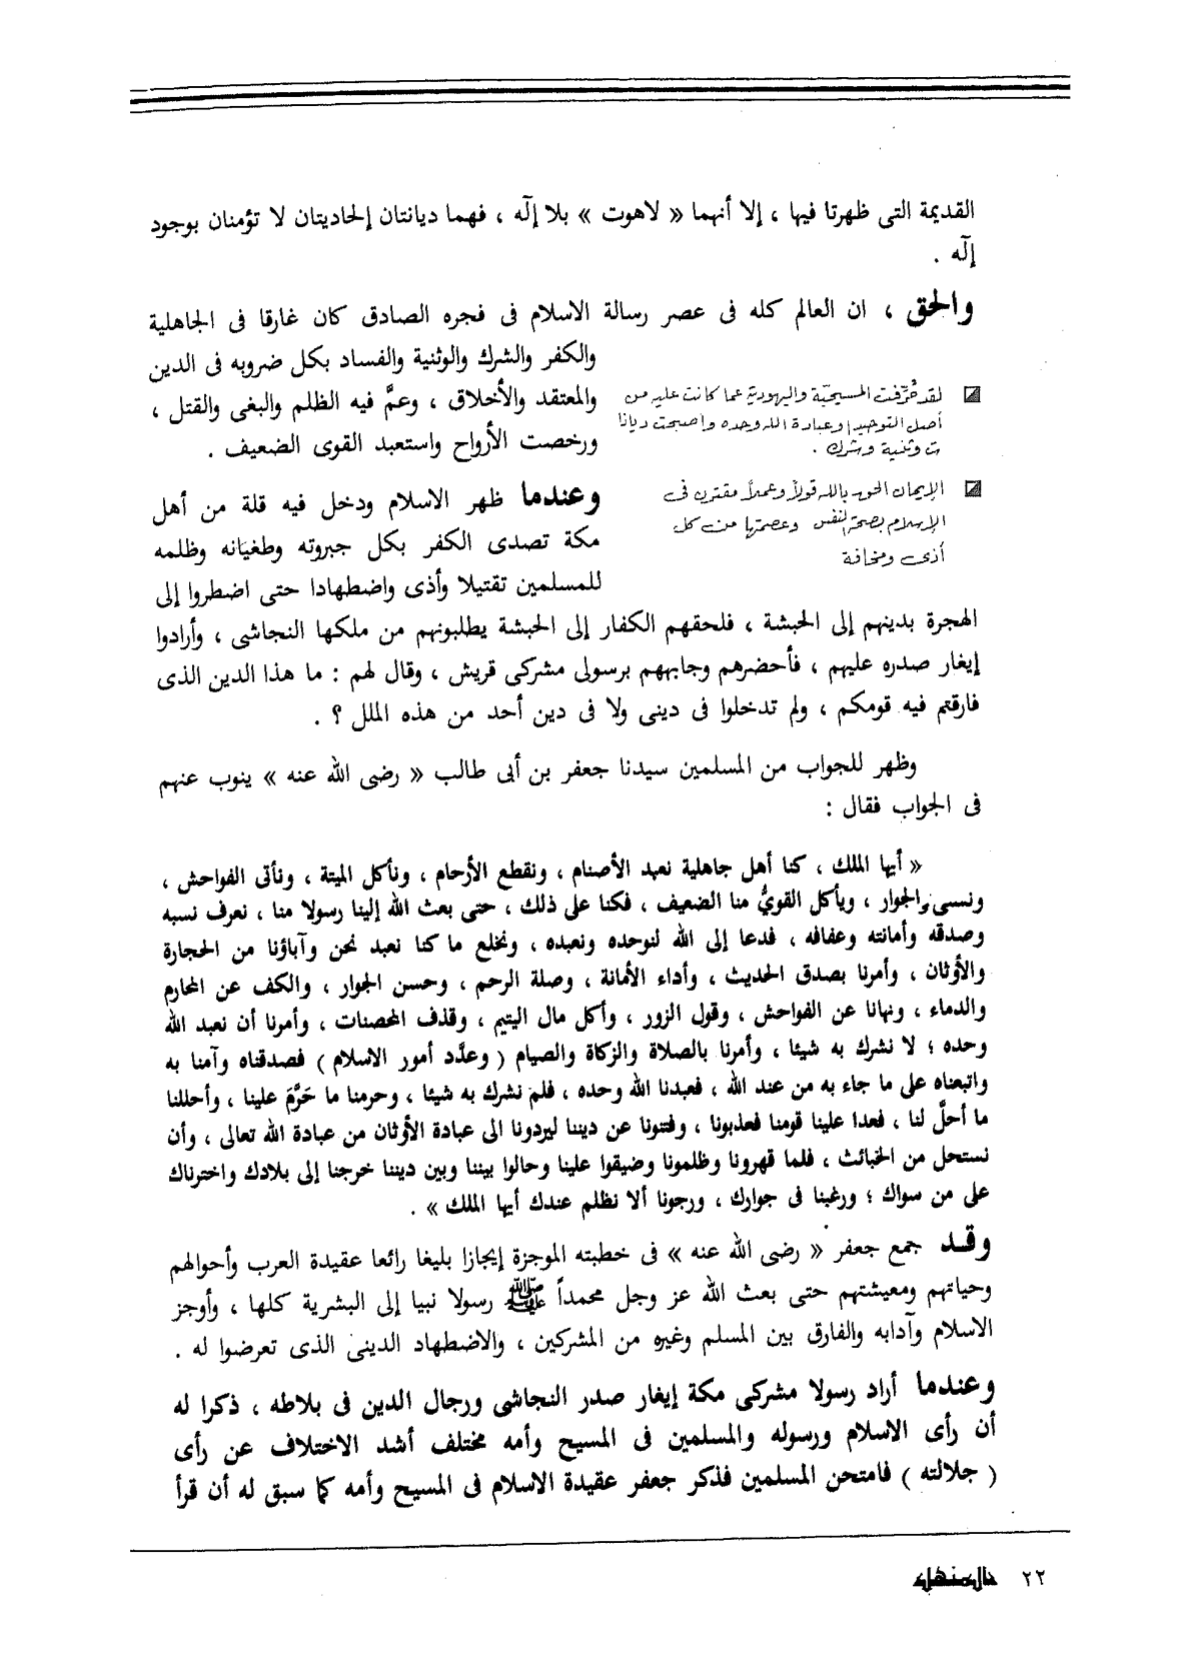 القديمة التى ظهرتا فيها ، إلا أنهما « لاهوت » بلا إلّه ، فهما ديانتان إلحاديتان لا تؤمنان بوجود
إلّه .
والحق ، ان العالم كله فى عصر رسالة الاسلام فى فجره الصادق كان غارقا فى الجاهلية
والكفر والشرك والوثنية والفساد بكل ضروبه فى الدين
والمعتقد والأخلاق ، وعمَّ فيه الظلم والبغى والقتل ،
ورخصت الأرواح واستعبد القوى الضعيف .
لقد حُرِّفت المسيحيّة واليهودية عما كانت عليه من
أصل التوحيد وعبادة الله وحده وأصبحت ديانا
ت وثنية وشرك .
الإيمان الحق بالله قولاً وعملاً مقترن فى
الإسلام بصحة النفس وعصمتها من كل
أذى ومخافة
وعندما ظهر الاسلام ودخل فيه قلة من أهل
مكة تصدى الكفر بكل جبروته وطغيانه وظلمه
للمسلمين تقتيلا وأذى واضطهادا حتى اضطروا إلى
الهجرة بدينهم إلى الحبشة ، فلحقهم الكفار إلى الحبشة يطلبونهم من ملكها النجاشى ، وأرادوا
إيغار صدره عليهم ، فأحضرهم وجابههم برسولى مشركى قريش ، وقال لهم : ما هذا الدين الذى
فارقتم فيه قومكم ، ولم تدخلوا فى دينى ولا فى دين أحد من هذه الملل ؟ .
وظهر للجواب من المسلمين سيدنا جعفر بن أبى طالب « رضى الله عنه » ينوب عنهم
فى الجواب فقال :
« أيها الملك ، كنا أهل جاهلية نعبد الأصنام ، ونقطع الأرحام ، ونأكل الميتة ، ونأتى الفواحش ،
ونسىء الجوار ، ويأكل القويُّ منا الضعيف ، فكنا على ذلك ، حتى بعث الله إلينا رسولا منا ، نعرف نسبه
وصدقه وأمانته وعفافه ، فدعا إلى الله لنوحده ونعبده ، ونخلع ما كنا نعبد نحن وآباؤنا من الحجارة
والأوثان ، وأمرنا بصدق الحديث ، وأداء الأمانة ، وصلة الرحم ، وحسن الجوار ، والكف عن المحارم
والدماء ، ونهانا عن الفواحش ، وقول الزور ، وأكل مال اليتيم ، وقذف المحصنات ، وأمرنا أن نعبد الله
وحده ؛ لا نشرك به شيئا ، وأمرنا بالصلاة والزكاة والصيام ( وعدَّد أمور الاسلام ) فصدقناه وآمنا به
واتبعناه على ما جاء به من عند الله ، فعبدنا الله وحده ، فلم نشرك به شيئا ، وحرمنا ما حَرَّمَ علينا ، وأحللنا
ما أحلَّ لنا ، فعدا علينا قومنا فعذبونا ، وفتنونا عن ديننا ليردونا الى عبادة الأوثان من عبادة الله تعالى ، وأن
نستحل من الخبائث ، فلما قهرونا وظلمونا وضيقوا علينا وحالوا بيننا وبين ديننا خرجنا إلى بلادك واخترناك
على من سواك ؛ ورغبنا فى جوارك ، ورجونا ألا نظلم عندك أيها الملك » .
وقد جمع جعفر « رضى الله عنه » فى خطبته الموجزة إيجازا بليغا رائعا عقيدة العرب وأحوالهم
وحياتهم ومعيشتهم حتى بعث الله عز وجل محمداً ﷺ رسولا نبيا إلى البشرية كلها ، وأوجز
الاسلام وآدابه والفارق بين المسلم وغيره من المشركين ، والاضطهاد الدينى الذى تعرضوا له .
وعندما أراد رسولا مشركى مكة إيغار صدر النجاشى ورجال الدين فى بلاطه ، ذكرا له
أن رأى الاسلام ورسوله والمسلمين فى المسيح وأمه مختلف أشد الاختلاف عن رأى
( جلالته ) فامتحن المسلمين فذكر جعفر عقيدة الاسلام فى المسيح وأمه كما سبق له أن قرأ
٢٢ المنهل